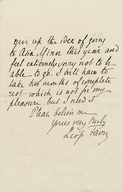 give up the idea of going
to Asia Minor this year and
feel extremely sorry not to be
able to go. I will have to
take two months of complete
rest which is not for my
pleasure, but I need it
Please believe me
Yours very truly